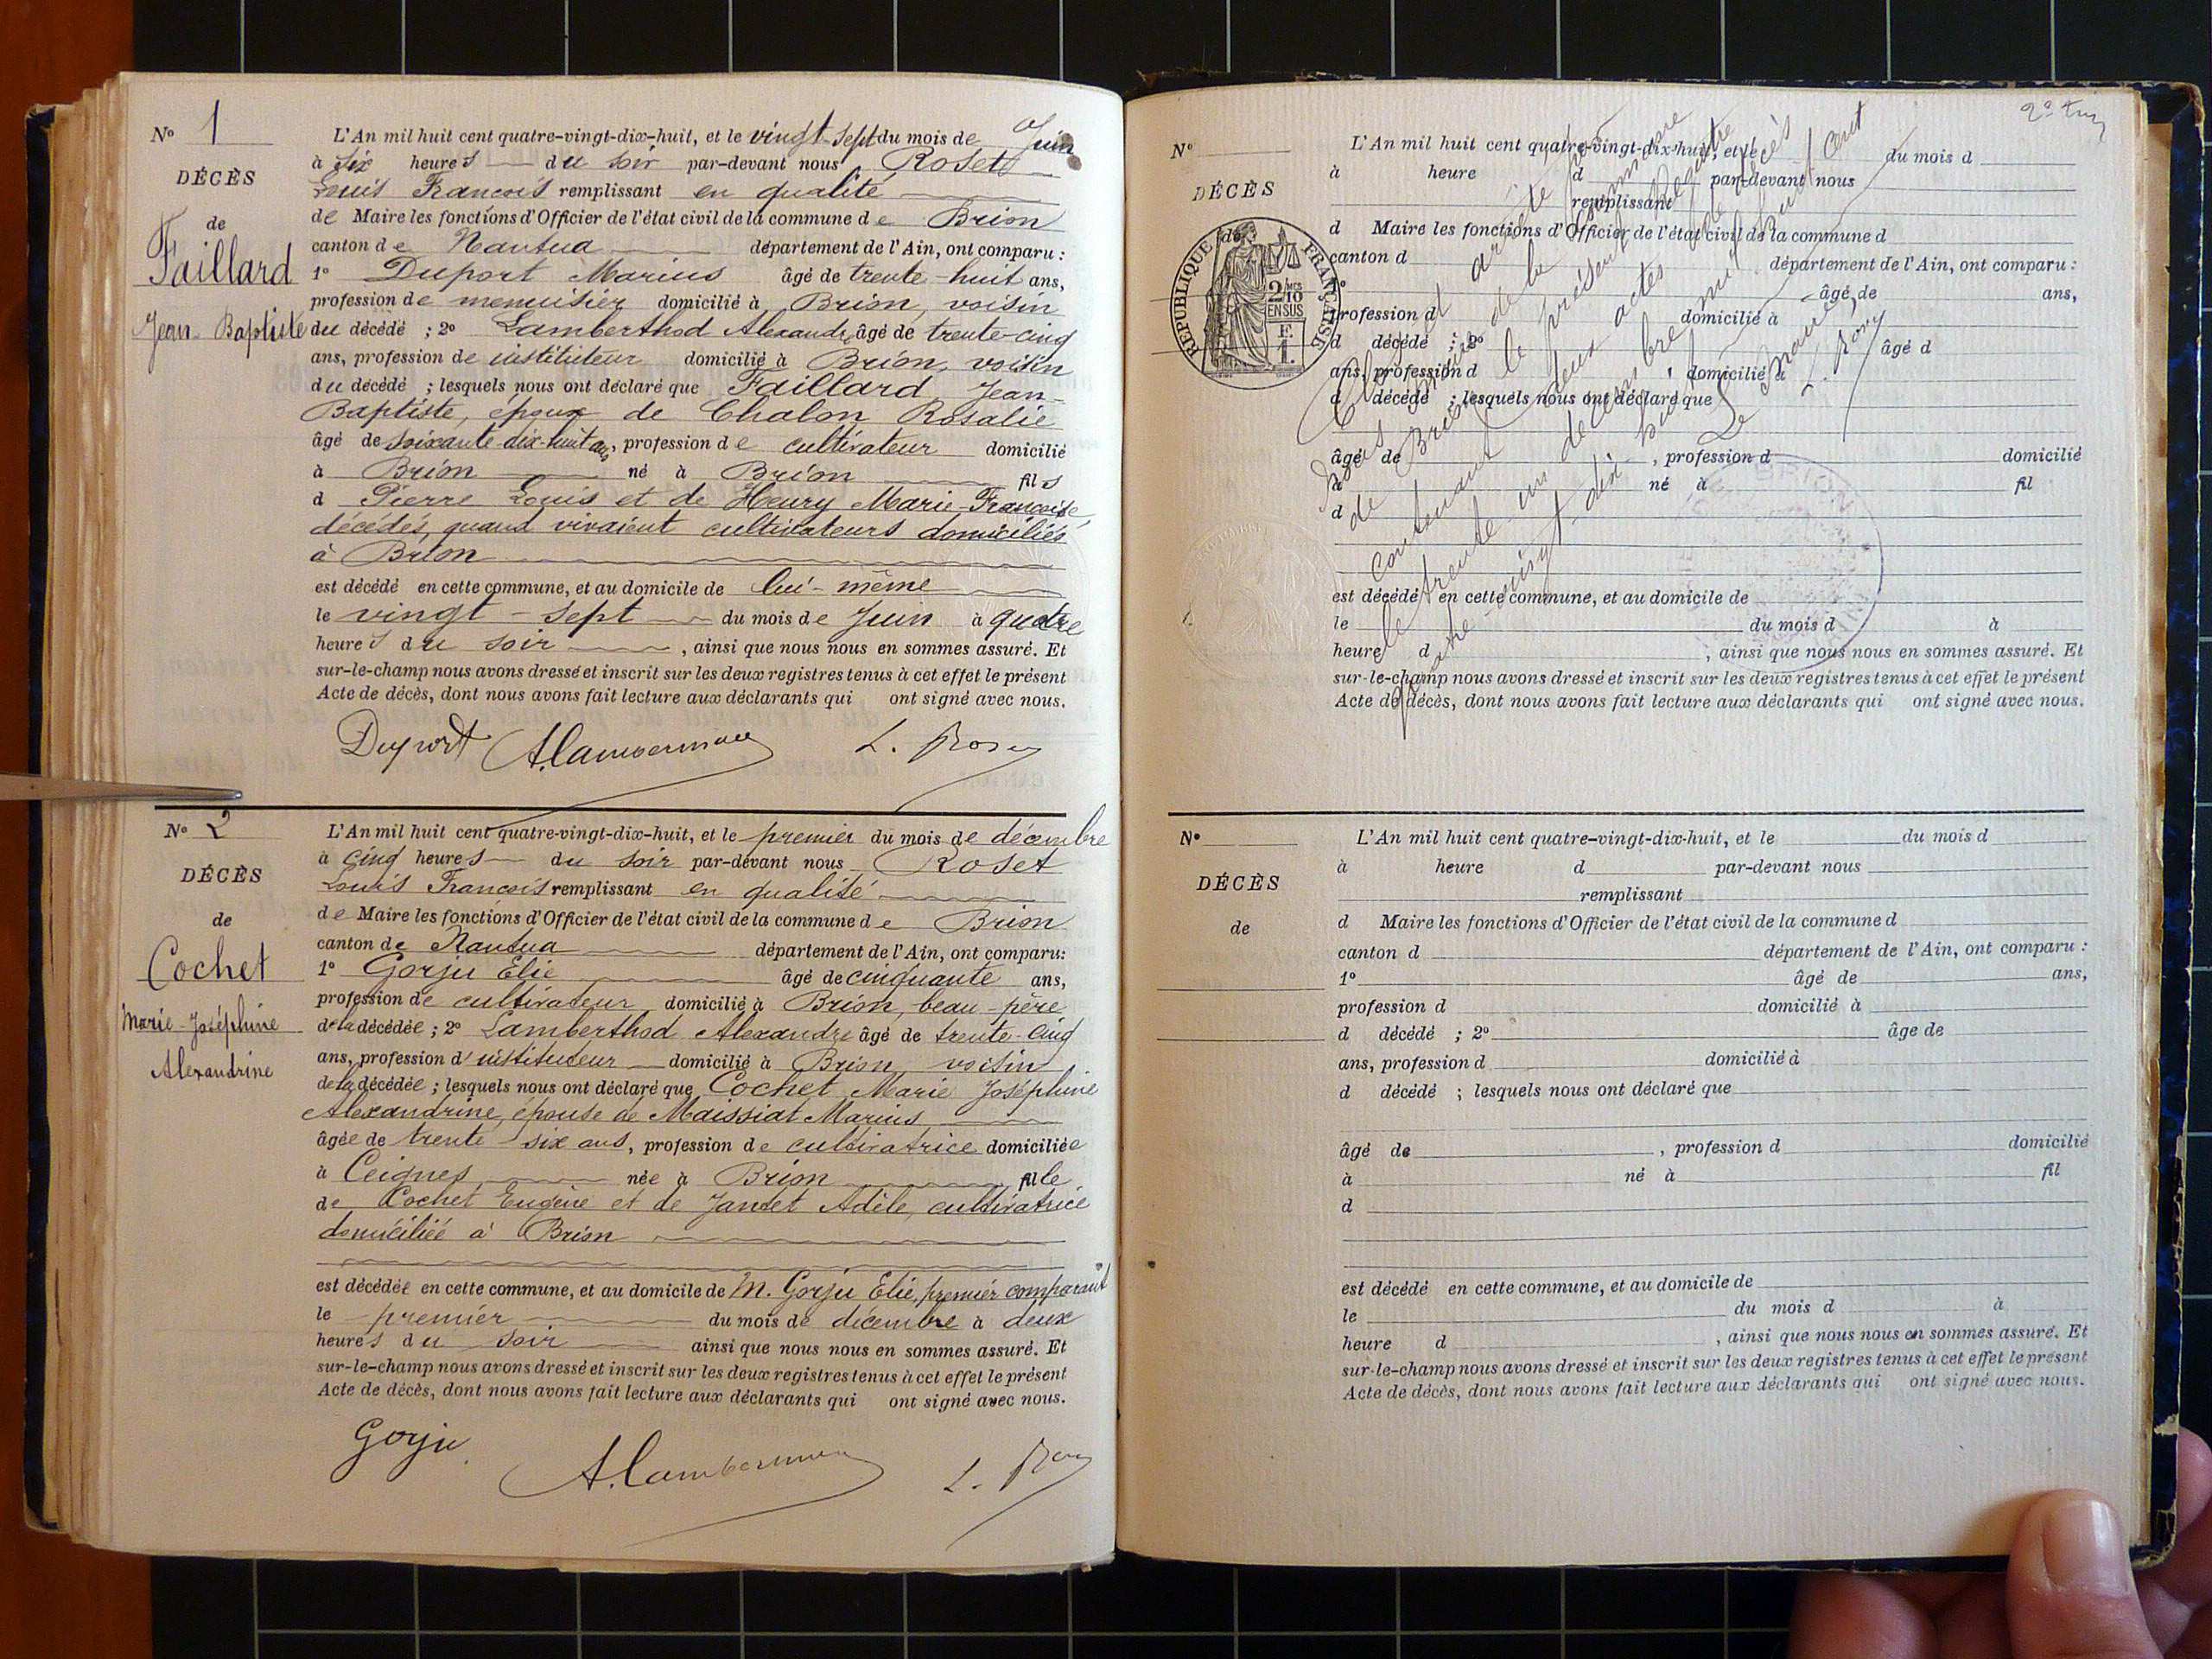 N° 1
DÉCÈS
de
Faillard
Jean-Baptiste
L'An mil huit cent quatre-vingt-dix-huit, et le vingt-sept du mois de Juin
à six heures du soir par-devant nous Roset
Louis François remplissant en qualité
de Maire les fonctions d'Officier de l'état civil de la commune de Brion
canton de Nantua département de l'Ain, ont comparu :
1° Duport Marius âgé de trente-huit ans,
profession de menuisier domicilié à Brion, voisin
du décédé ; 2° Lamberthod Alexandre âgé de trente-cinq
ans, profession de instituteur domicilié à Brion, voisin
du décédé ; lesquels nous ont déclaré que Faillard Jean-
Baptiste, époux de Chalon Rosalie
âgé de soixante-dix-huit ans, profession de cultivateur domicilié
à Brion né à Brion fils
d Pierre Louis et de Henry Marie-Françoise
décédés, quand vivaient cultivateurs domiciliés
à Brion
est décédé en cette commune, et au domicile de lui-même
le vingt-sept du mois de Juin à quatre
heures du soir, ainsi que nous nous en sommes assuré. Et
sur-le-champ nous avons dressé et inscrit sur les deux registres tenus à cet effet le présent
Acte de décès, dont nous avons fait lecture aux déclarants qui ont signé avec nous.
Duport
N° 2
DÉCÈS
de
Cochet
Marie-Joséphine
Alexandrine
L'An mil huit cent quatre-vingt-dix-huit, et le premier du mois de décembre
à cinq heures du soir par-devant nous Roset
Louis François remplissant en qualité
de Maire les fonctions d'Officier de l'état civil de la commune de Brion
canton de Nantua département de l'Ain, ont comparu:
1° Gorju Elie âgé de cinquante ans,
profession de cultivateur domicilié à Brion, beau-père
de la décédée ; 2° Lamberthod Alexandre âgé de trente-cinq
ans, profession d'instituteur domicilié à Brion, voisin
de la décédée ; lesquels nous ont déclaré que Cochet Marie Joséphine
Alexandrine, épouse de Maissiat Marius
âgée de trente-six ans, profession de cultivatrice domiciliée
à Ceignes née à Brion fille
de Cochet Eugène et de Jantet Adèle, cultivatrice
domiciliée à Brion
est décédée en cette commune, et au domicile de M. Gorju Elie, premier comparant
le premier du mois de décembre à deux
heures du soir ainsi que nous nous en sommes assuré. Et
sur-le-champ nous avons dressé et inscrit sur les deux registres tenus à cet effet le présent
Acte de décès, dont nous avons fait lecture aux déclarants qui ont signé avec nous.
Gorju
N°
DÉCÈS
de
RÉPUBLIQUE FRANÇAISE
2/10 EN SUS
F.
1.
L'An mil huit cent quatre-vingt-dix-huit, et le du mois d
à heure d par-devant nous
remplissant
d Maire les fonctions d'Officier de l'état civil de la commune d
canton d département de l'Ain, ont comparu :
1° âgé de ans,
profession d domicilié à
d décédé ; 2° âgé d
ans, profession d domicilié à
d décédé ; lesquels nous ont déclaré que
âgé de , profession d domicilié
à né à fil
d
est décédé en cette commune, et au domicile de
le du mois d à
heure d , ainsi que nous nous en sommes assuré. Et
sur-le-champ nous avons dressé et inscrit sur les deux registres tenus à cet effet le présent
Acte de décès, dont nous avons fait lecture aux déclarants qui ont signé avec nous.
Clos et arrêté par
nous maire de la commune
de Brion le présent registre
contenant deux actes de décès
le trente-un décembre mil huit cent
quatre-vingt-dix-huit
Le Maire,
N°
DÉCÈS
de
L'An mil huit cent quatre-vingt-dix-huit, et le du mois d
à heure d par-devant nous
remplissant
d Maire les fonctions d'Officier de l'état civil de la commune d
canton d département de l'Ain, ont comparu :
1° âgé de ans,
profession d domicilié à
d décédé ; 2° âge de
ans, profession d domicilié à
d décédé ; lesquels nous ont déclaré que
âgé de , profession d domicilié
à né à fil
d
est décédé en cette commune, et au domicile de
le du mois d à
heure d , ainsi que nous nous en sommes assuré. Et
sur-le-champ nous avons dressé et inscrit sur les deux registres tenus à cet effet le présent
Acte de décès, dont nous avons fait lecture aux déclarants qui ont signé avec nous.